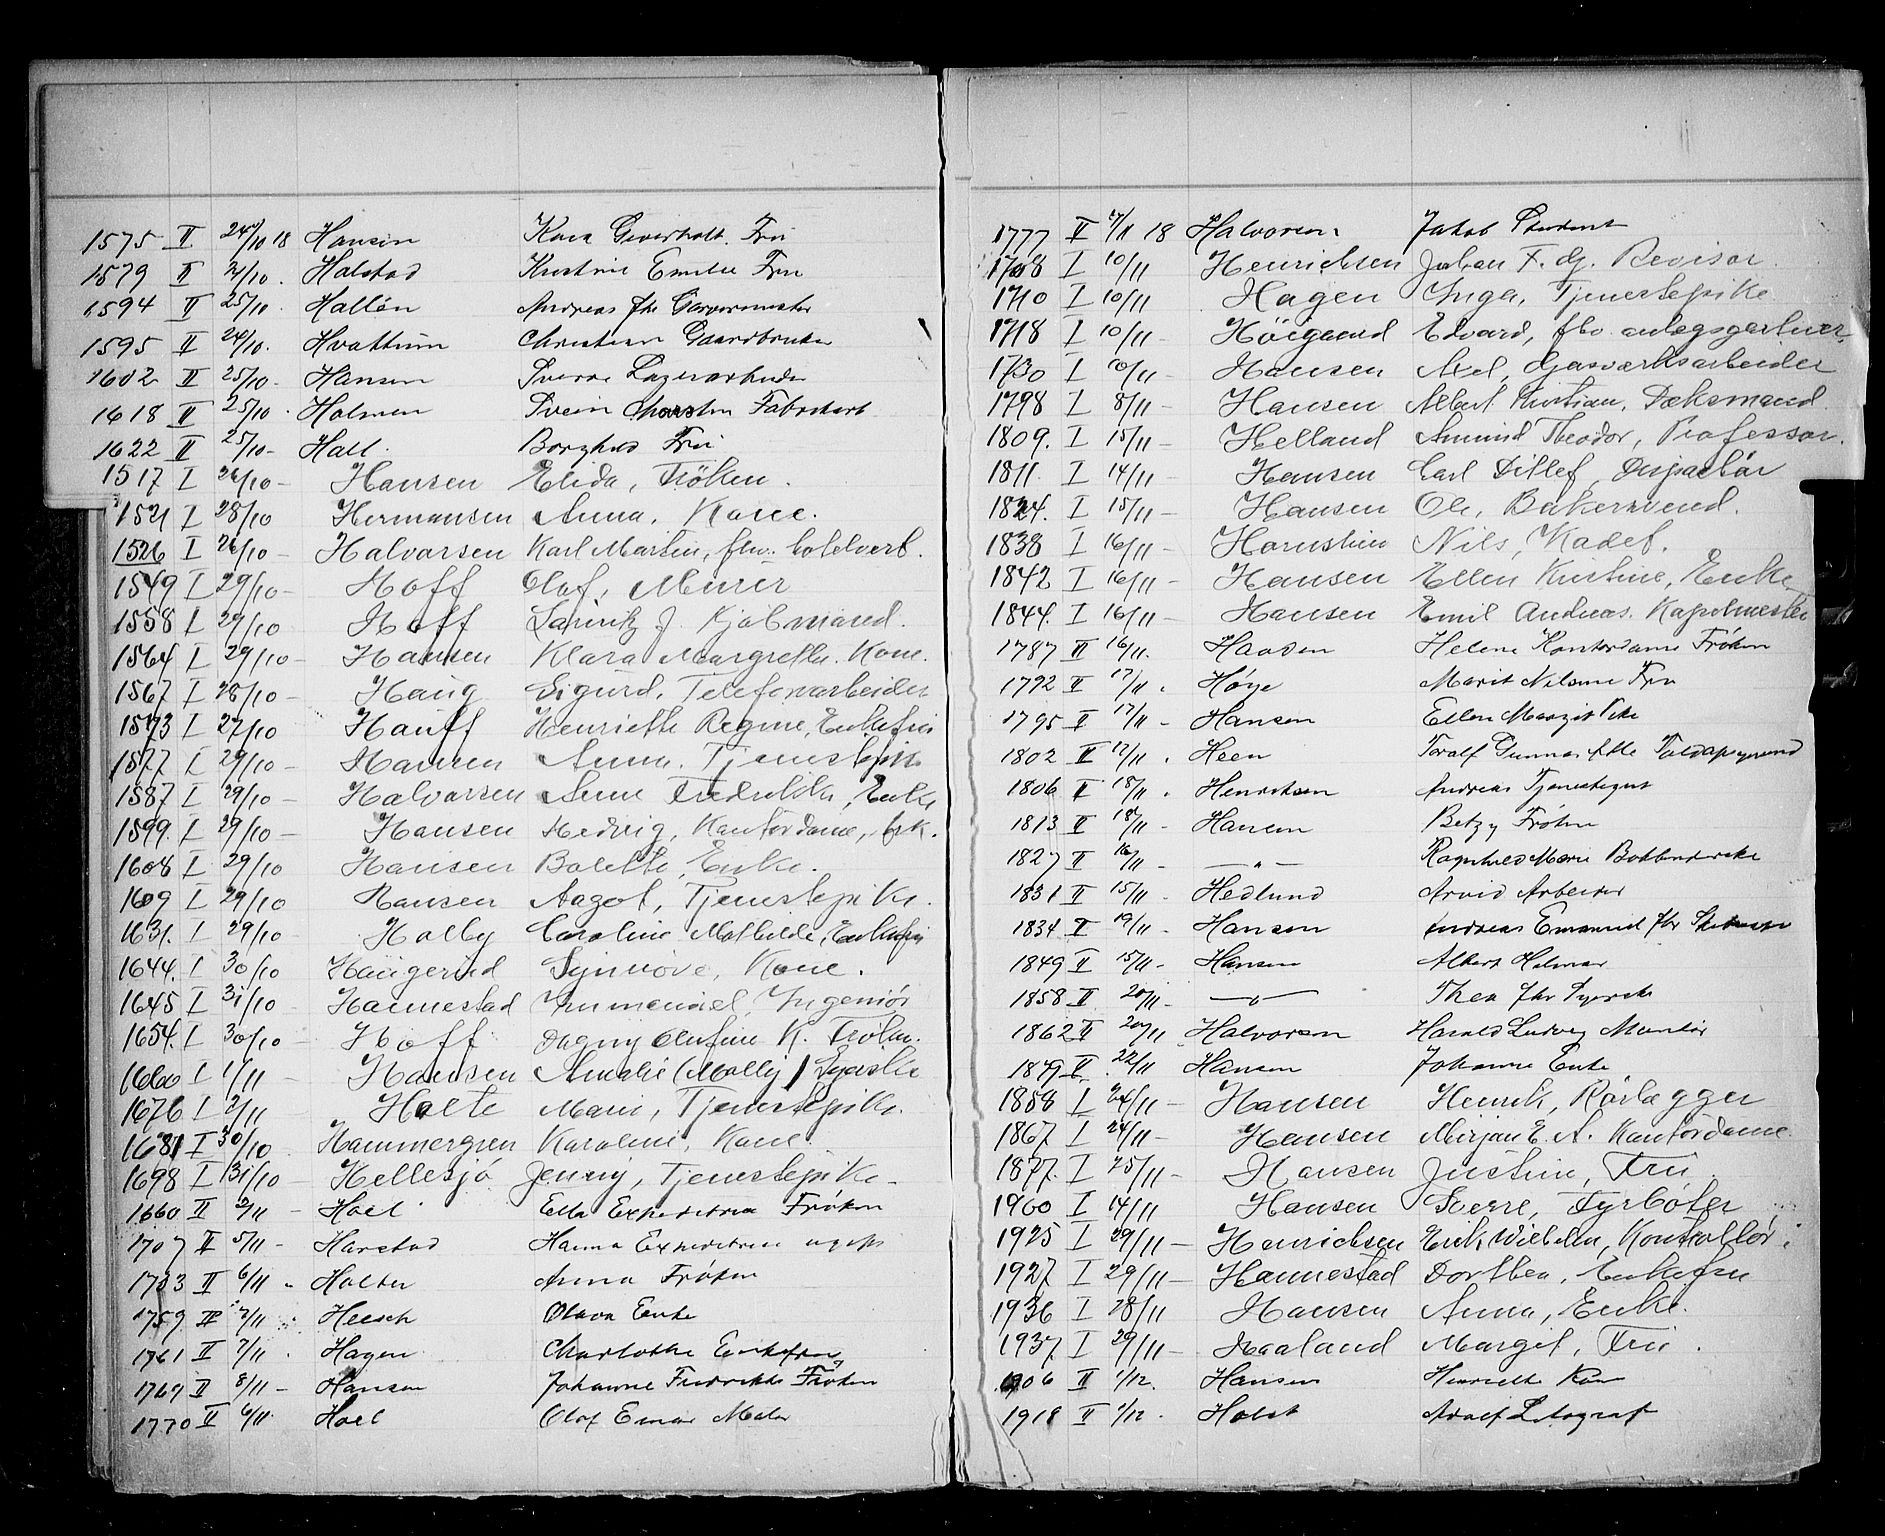 1575 II 24/10 18 Hansen Kaia Fru
1579 II 21/10. Halstad Kristine Emilie Fru
1594 II 25/10. Hallén Andreas fhv Garvermester
1595 II 24/10. Hvattum Christian Gaardbruker
1602 II 25/10- Hansen Sverre Lagerarbeider
1618 II 25/10. Holmen Svein Fabrikarb
1622 II 25/10- Hall. Borghild Fru
1517 I 26/10- Hansen Elida, Frøken.
1521 I 28/10 Hermansen Anna, Kone.
1526 I 26/10- Halvorsen Karl Martin, fhv. hotelvert.
1549 I 29/10- Hoff Olaf, Murer
1558 I 29/10 Hoff J. Kjøbmand.
1564 I 29/10- Hansen Klara Margrethe. Kone.
1567 I 28/10- Haug Sigurd, Telefonarbeider
1573 I 27/10- Hauff Henriette Regine, Enkefru
1577 I 29/10- Hansen Anna. Tjenestepike
1587 I 29/10- Halvorsen Anne Fredrikke, Enke
1599. I 29/10- Hansen Hedvig, Kontordame, frk.
1608 I 29/10 Hansen Bolette, Enke.
1609 I 29/10 Hansen Aagot, Tjenestepike.
1631. I 29/10 Holby Caroline Mathilde, Enkefru
1644. I 30/10 Haugerud Synnøve, Kone.
1645 I 31/10 Hannestad Immanuel, Ingeniør
1654. I 30/10- Hoff Dagny Olufine K. Frøken.
1660 I 1/11- Hansen Amalie (Molly) Syerske
1676 I 2/11 Holte Marie, Tjenestepike.
1681 I 30/10 Hammergren Karoline, Kone.
1698 I 31/10- Hellesjø Jenny, Tjenestepike-
1660 II 2/11- Hoel Ella Expeditrice Frøken
1707 II 5/11- Harstad Hanna Expeditrice ugift
1733 II 6/11- Holter Anna Frøken
1759 II 7/11. Heesch Olava Enke
1761 II 7/11. Hagen Charlotte Enkefru
1769 II 8/11- Hansen Johanne Fredrikke Frøken
1770 II 6/11. Hoel Olaf Einar Maler
1777 II 7/11 18 Halvorsen Jakob Student
1708 I 10/11 Henrichsen Johan F. Revisor.
1710 I 10/11 Hagen Inga, Tjenestepike
1718 I 10/11- Høigaard Edvard, fhv. anlegsgartner.
1730 I 10/11- Hansen Axel, Gasverksarbeider
1798 I 8/11- Hansen Albert Kristian, Dæksmand.
1809. I 15/11- Helland Amund Theodor, Professor.
1811. I 14/11- Hansen Carl Ditlef, Disponent
1824. I 15/11- Hansen Ole, Bakersvend.
1838 I 16/11- Hornstien Nils, Kadet.
1842 I 16/11- Hansen Ellen Kristine, Enke
1844. I 16/11- Hansen Emil Andreas. Kapelmester
1787 II 16/11. Hansen Helene Kontordame Frøken
1792 II 17/11. Høye Marit Nilsine Fru
1795 II 17/11- Hansen Ellen Margit Pike
1802 II 17/11. Heen Toralf Gunnar
1806 II 18/11. Henriksen Andreas Tjenestegut
1813 II 18/11- Hansen Betzy Frøken
1827 II 16/11- —„— Ragnhild Marie
1831 II 15/11- Hedlund Arvid Arbeider
1834 II 19/11- Hansen Andreas Emanuel fhv
1849 II 15/11- Hansen Albert Helmar
1858 II 20/11- —„— Thea fhv Syerske
1862 II 20/11 Halvorsen Harald Ludvig Montør
1879 II 22/11 Hansen Johanne Enke
1858 I 24/11- Hansen Henrik, Rørlegger
1867. I 24/11- Hansen Mirjam E. A. Kontordame.
1877. I 25/11- Hansen Justine, Fru.
1900 I 14/11 Hansen Sverre, Fyrbøter
1925 I 29/11- Henrichsen Erik Wilhelm, Kontrollør.
1927 I 29/11- Hannestad Dorthea, Enkefru
1936 I 28/11 Hansen Anna, Enke.
1937. I 29/11- Haaland Margit, Fru.
1906 II 1/12. Hansen Henriette Kone
1918 II 1/12. Holst Adolf Litograf